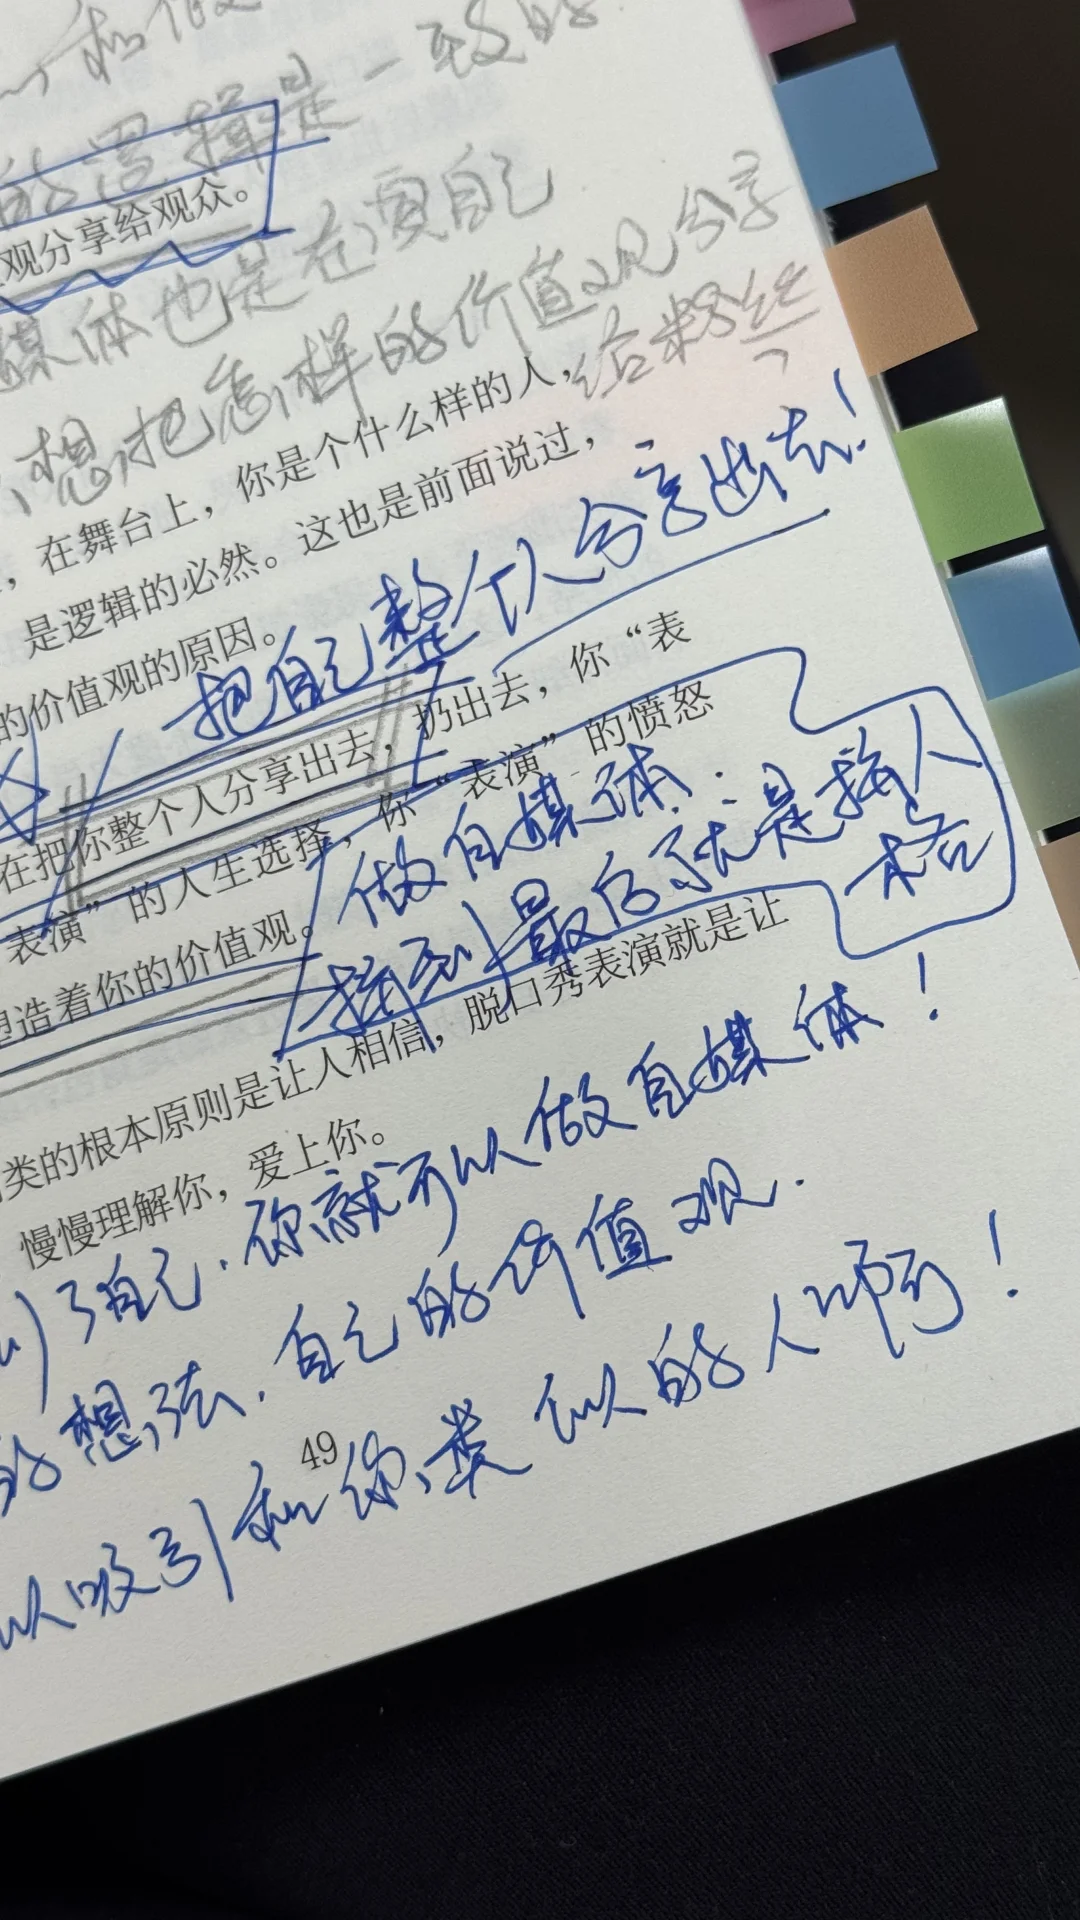 和做
的逻辑是一致的.
观分享给观众。
媒体也是在演自己
想把怎样的价值观分享
给粉丝
，在舞台上，你是个什么样的人，
是逻辑的必然。这也是前面说过，
的价值观的原因。
把自己整个人分享出去！
在把你整个人分享出去，扔出去，你“表
表演”的人生选择，你“表演”的愤怒
塑造着你的价值观。
做自媒体：
搞到最后就是搞人格
类的根本原则是让人相信，脱口秀表演就是让
慢慢理解你，爱上你。
了自己.你就可以做自媒体！
想法.自己的价值观.
49
以吸引和你类似的人啊！